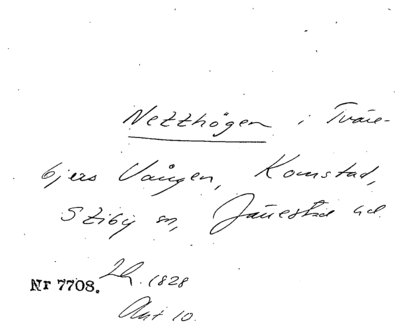 Nezzhögen i Tväre-
bjers Vången, Komstad,
Sziby sn, Järrestad hd.
Nr 7708. 1828
Akt 10.